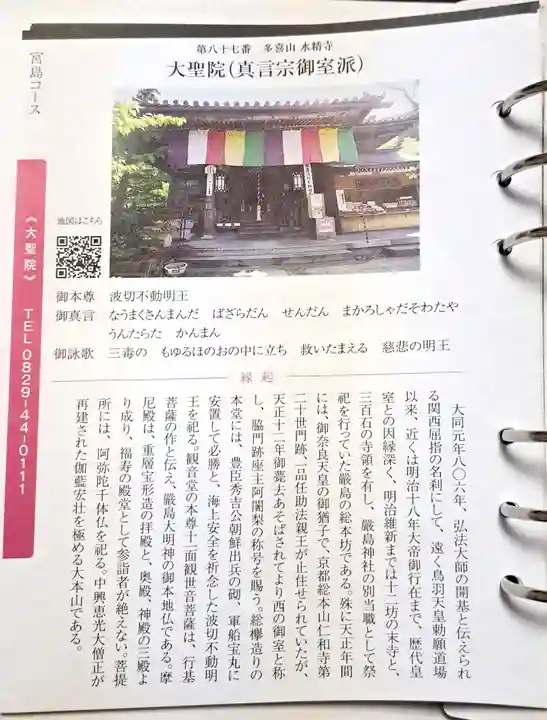 第八十七番　多喜山 水精寺
大聖院(真言宗御室派)
宮島コース
地図はこちら
《大聖院》　TEL 0829-44-0111
御本尊　波切不動明王
御真言　なうまくさんまんだ　ばざらだん　せんだん　まかろしゃだそわたや
うんたらた　かんまん
御詠歌　三毒の　もゆるほのおの中に立ち　救いたまえる　慈悲の明王
縁起
大同元年八〇六年、弘法大師の開基と伝えられ
る関西屈指の名刹にして、遠く鳥羽天皇勅願道場
以来、近くは明治十八年大帝御行在まで、歴代皇
室との因縁深く、明治維新までは十二坊の末寺と、
三百石の寺領を有し、厳島神社の別当職として祭
祀を行っていた厳島の総本坊である。殊に天正年間
には、御奈良天皇の御猶子で、京都総本山仁和寺第
二十世門跡、一品任助法親王が止住せられていたが、
天正十二年御薨去あそばされてより西の御室と称
し、脇門跡座主阿闍梨の称号を賜う。総欅造りの
本堂には、豊臣秀吉公朝鮮出兵の砌、軍船宝丸に
安置して必勝と、海上安全を祈念した波切不動明
王を祀る。観音堂の本尊十一面観世音菩薩は、行基
菩薩の作と伝え、厳島大明神の御本地仏である。摩
尼殿は、重層宝形造の拝殿と、奥殿、神殿の三殿よ
り成り、福寿の殿堂として参詣者が絶えない。菩提
所には、阿弥陀千体仏を祀る。中興恵光大僧正が
再建された伽藍宏壮を極める大本山である。